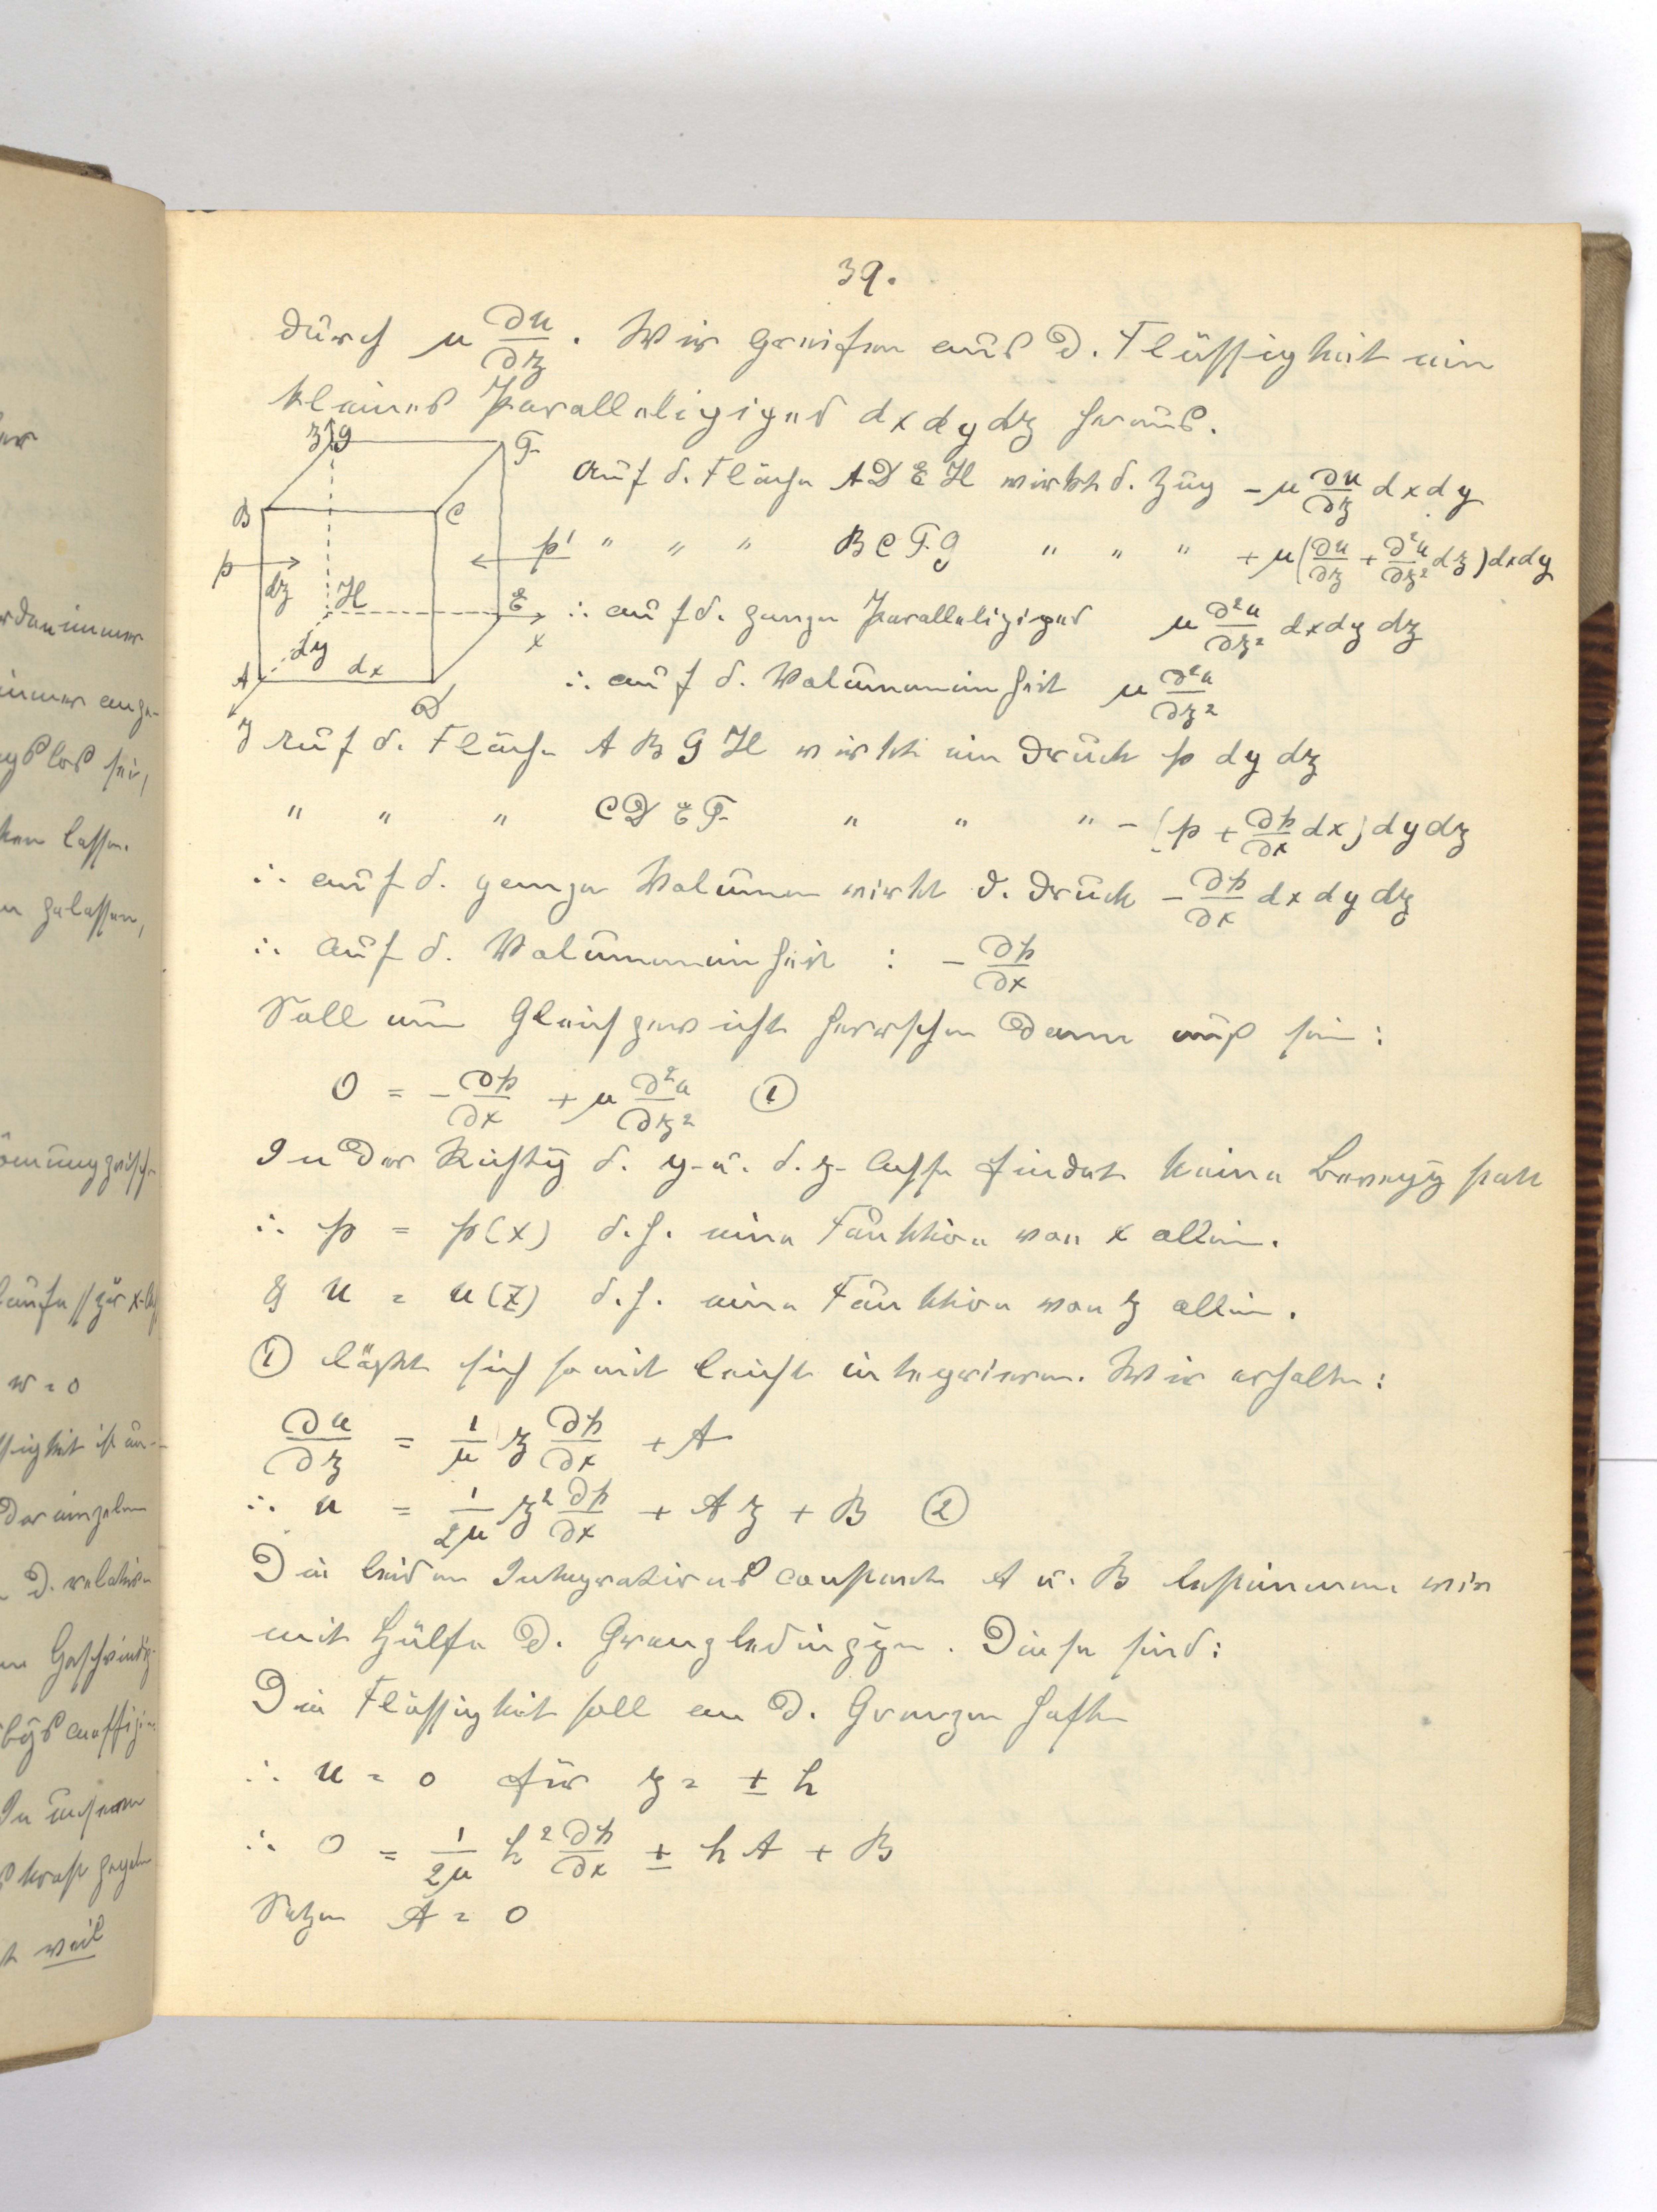 39.
durch μ ∂u/∂z. Wir greifen aus d. Flüssigkeit ein
kleines Parallelipiped dx dy dz heraus.
z G F
Auf d. Fläche ADEH wirkt d. Zug − μ ∂u/∂z dxdy
B C
p p' " " " BCFG " " " + μ(∂u/∂z + ∂²u/∂z² dz)dxdy
dz H E x
∴ auf d. ganze Parallelipiped μ ∂²u/∂z² dxdy dz
dy
A dx D
∴ auf d. Volumeneinheit μ ∂²u/∂z²
y
Auf d. Fläche ABGH wirkt ein Druck p dy dz
" " " CDEF " " " − (p + ∂p/∂x dx) dydz
∴ auf d. ganze Volumen wirkt d. Druck − ∂p/∂x dx dy dz
∴ Auf d. Volumeneinheit : − ∂p/∂x
Soll nun Gleichgewicht herrschen dann muß sein:
0 = − ∂p/∂x + μ ∂²u/∂z² ①
In der Richtg̅ d. y- u. d. z- Achse findet keine Bewegg̅ statt
∴ p = p(x) d.h. eine Funktion von x allein.
& u = u(z) d.h. eine Funktion von z allein.
① läßt sich somit leicht integrieren. Wir erhalten:
∂u/∂z = 1/μ z ∂p/∂x + A
∴ u = 1/2μ z² ∂p/∂x + Az + B ②
Die beiden Integrationsconstante A u. B bestimmen wir
mit Hülfe d. Grenzbedingg̅en. Diese sind:
Die Flüssigkeit soll an d. Grenzen haften
∴ u = 0 für z = ± h
∴ 0 = 1/2μ h² ∂p/∂x ± h A + B
Setzen A = 0
w = 0
weil